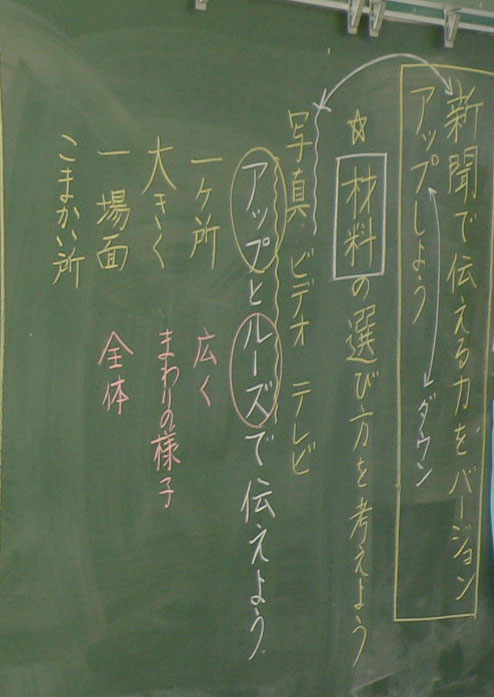 新聞で伝える力をバージョン
アップしよう
ダウン
☆材料の選び方を考えよう
写真 ビデオ テレビ
アップとルーズで伝えよう
一ヶ所 広く
大きく まわりの様子
一場面 全体
こまかい所